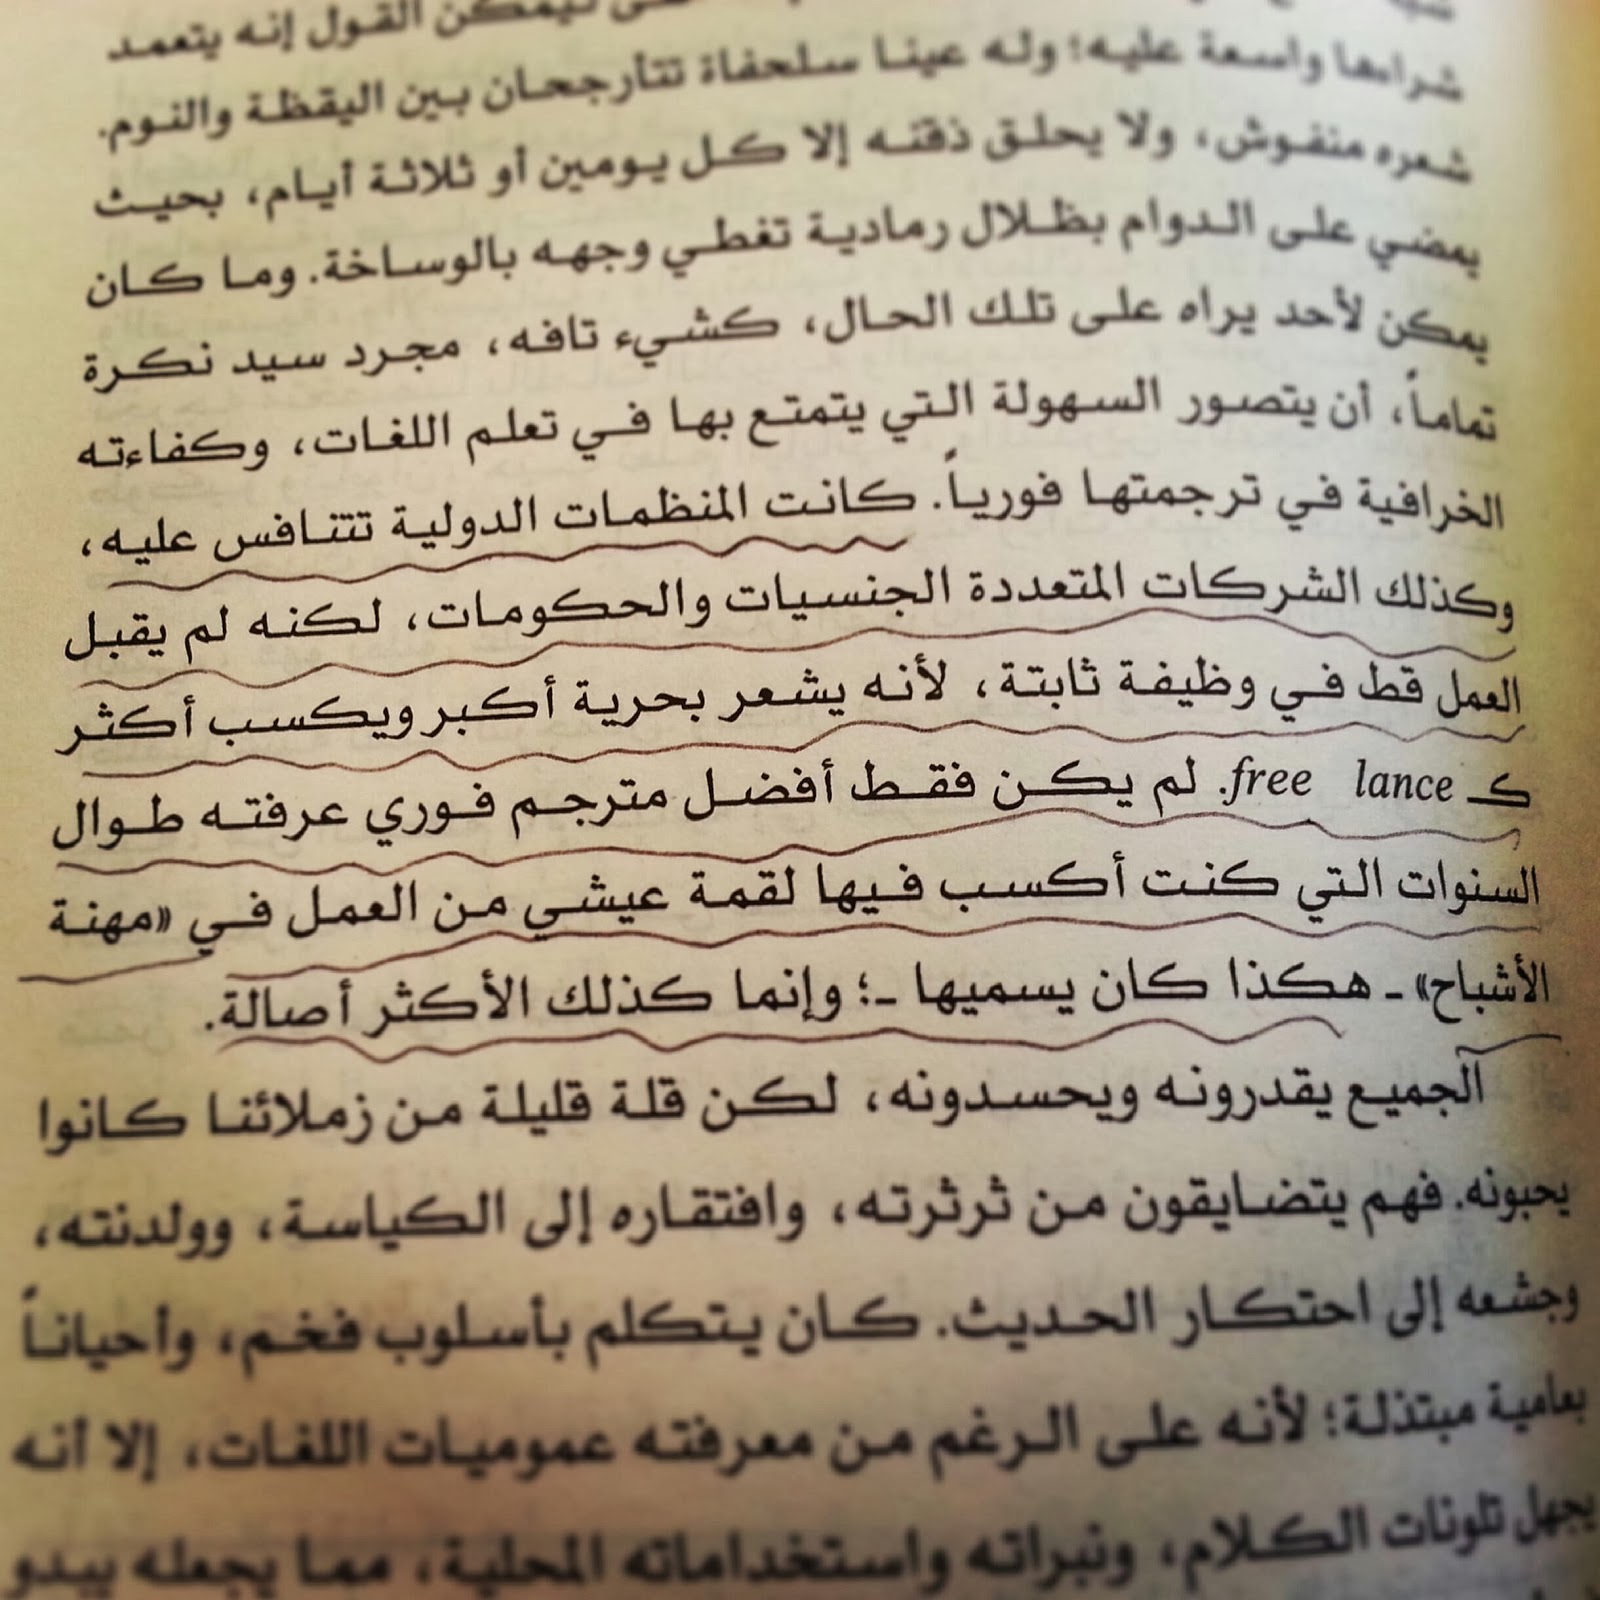 ليمكن القول إنه يتعمد
شراءها واسعة عليه؛ وله عينا سلحفاة تتأرجحان بين اليقظة والنوم.
شعره منفوش، ولا يحلق ذقنه إلا كل يومين أو ثلاثة أيام، بحيث
يمضي على الدوام بظلال رمادية تغطي وجهه بالوساخة. وما كان
يمكن لأحد يراه على تلك الحال، كشيء تافه، مجرد سيد نكرة
تماماً، أن يتصور السهولة التي يتمتع بها في تعلم اللغات، وكفاءته
الخرافية في ترجمتها فورياً. كانت المنظمات الدولية تتنافس عليه،
وكذلك الشركات المتعددة الجنسيات والحكومات، لكنه لم يقبل
العمل قط في وظيفة ثابتة، لأنه يشعر بحرية أكبر ويكسب أكثر
كـ free lance. لم يكن فقط أفضل مترجم فوري عرفته طوال
السنوات التي كنت أكسب فيها لقمة عيشي من العمل في «مهنة
الأشباح» ـ هكذا كان يسميها ـ؛ وإنما كذلك الأكثر أصالة.
الجميع يقدرونه ويحسدونه، لكن قلة قليلة من زملائنا كانوا
يحبونه. فهم يتضايقون من ثرثرته، وافتقاره إلى الكياسة، وولدنته،
وجشعه إلى احتكار الحديث. كان يتكلم بأسلوب فخم، وأحياناً
بعامية مبتذلة؛ لأنه على الرغم من معرفته عموميات اللغات، إلا أنه
يجهل تلونات الكلام، ونبراته واستخداماته المحلية، مما يجعله يبدو